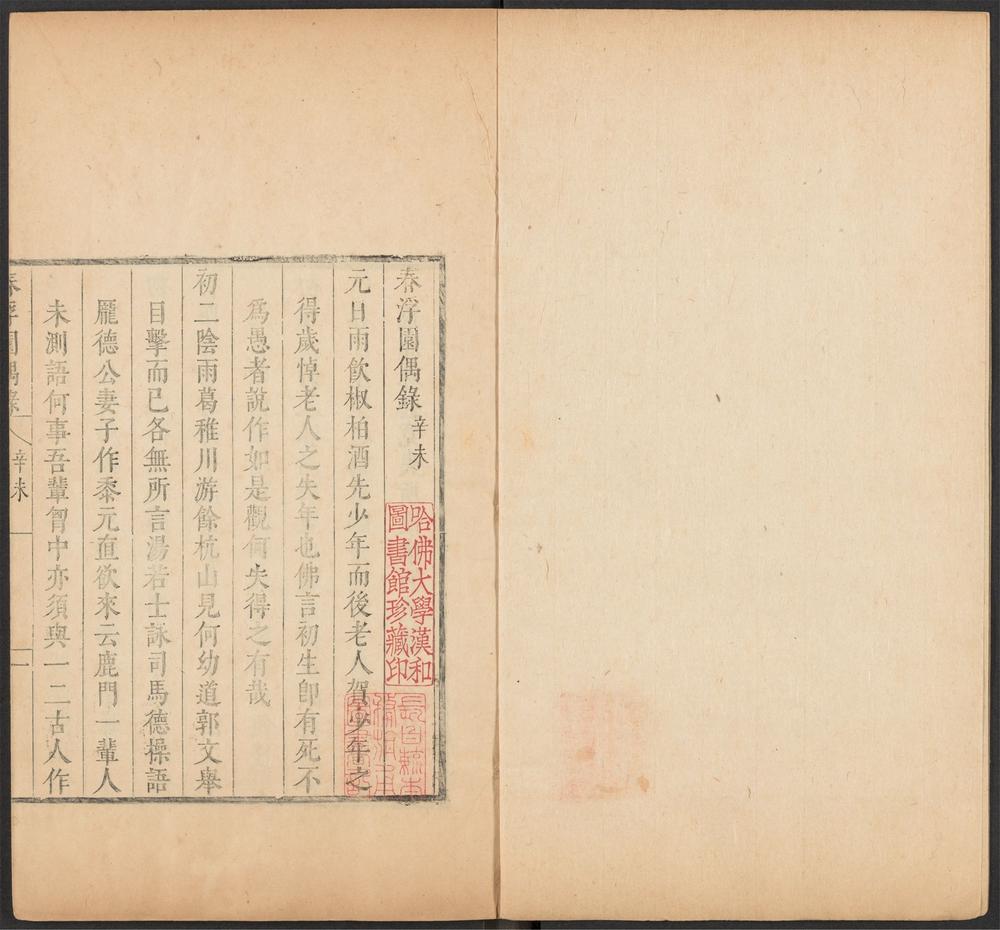 春浮園偶錄 辛未
元日雨飲椒柏酒先少年而後老人賀少年之
得歲悼老人之失年也佛言初生卽有死不
爲愚者說作如是觀何失得之有哉
初二陰雨葛稚川游餘杭山見何幼道郭文舉
目擊而已各無所言湯若士詠司馬德操語
龎德公妻子作黍元直欲來云鹿門一輩人
未測語何事吾輩胷中亦須與一二古人作
春浮園偶錄 辛未 一
哈佛大學漢和
圖書館珍藏印